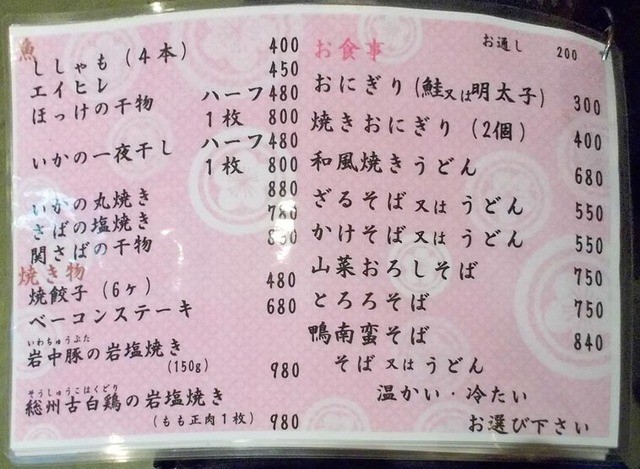 魚
ししゃも(4本) 400
エイヒレ 450
ほっけの干物 ハーフ 480
1枚 800
いかの一夜干し ハーフ 480
1枚 800
いかの丸焼き 880
さばの塩焼き 780
関さばの干物
焼き物
焼餃子(6ヶ) 480
ベーコンステーキ 680
いわちゅうぶた
岩中豚の岩塩焼き
(150g) 980
そうしゅうこはくどり
総州古白鶏の岩塩焼き
(もも正肉1枚) 980
お通し 200
お食事
おにぎり(鮭又は明太子) 300
焼きおにぎり(2個) 400
和風焼きうどん 680
ざるそば又はうどん 550
かけそば又はうどん 550
山菜おろしそば 750
とろろそば 750
鴨南蛮そば 840
そば又はうどん
温かい・冷たい
お選び下さい